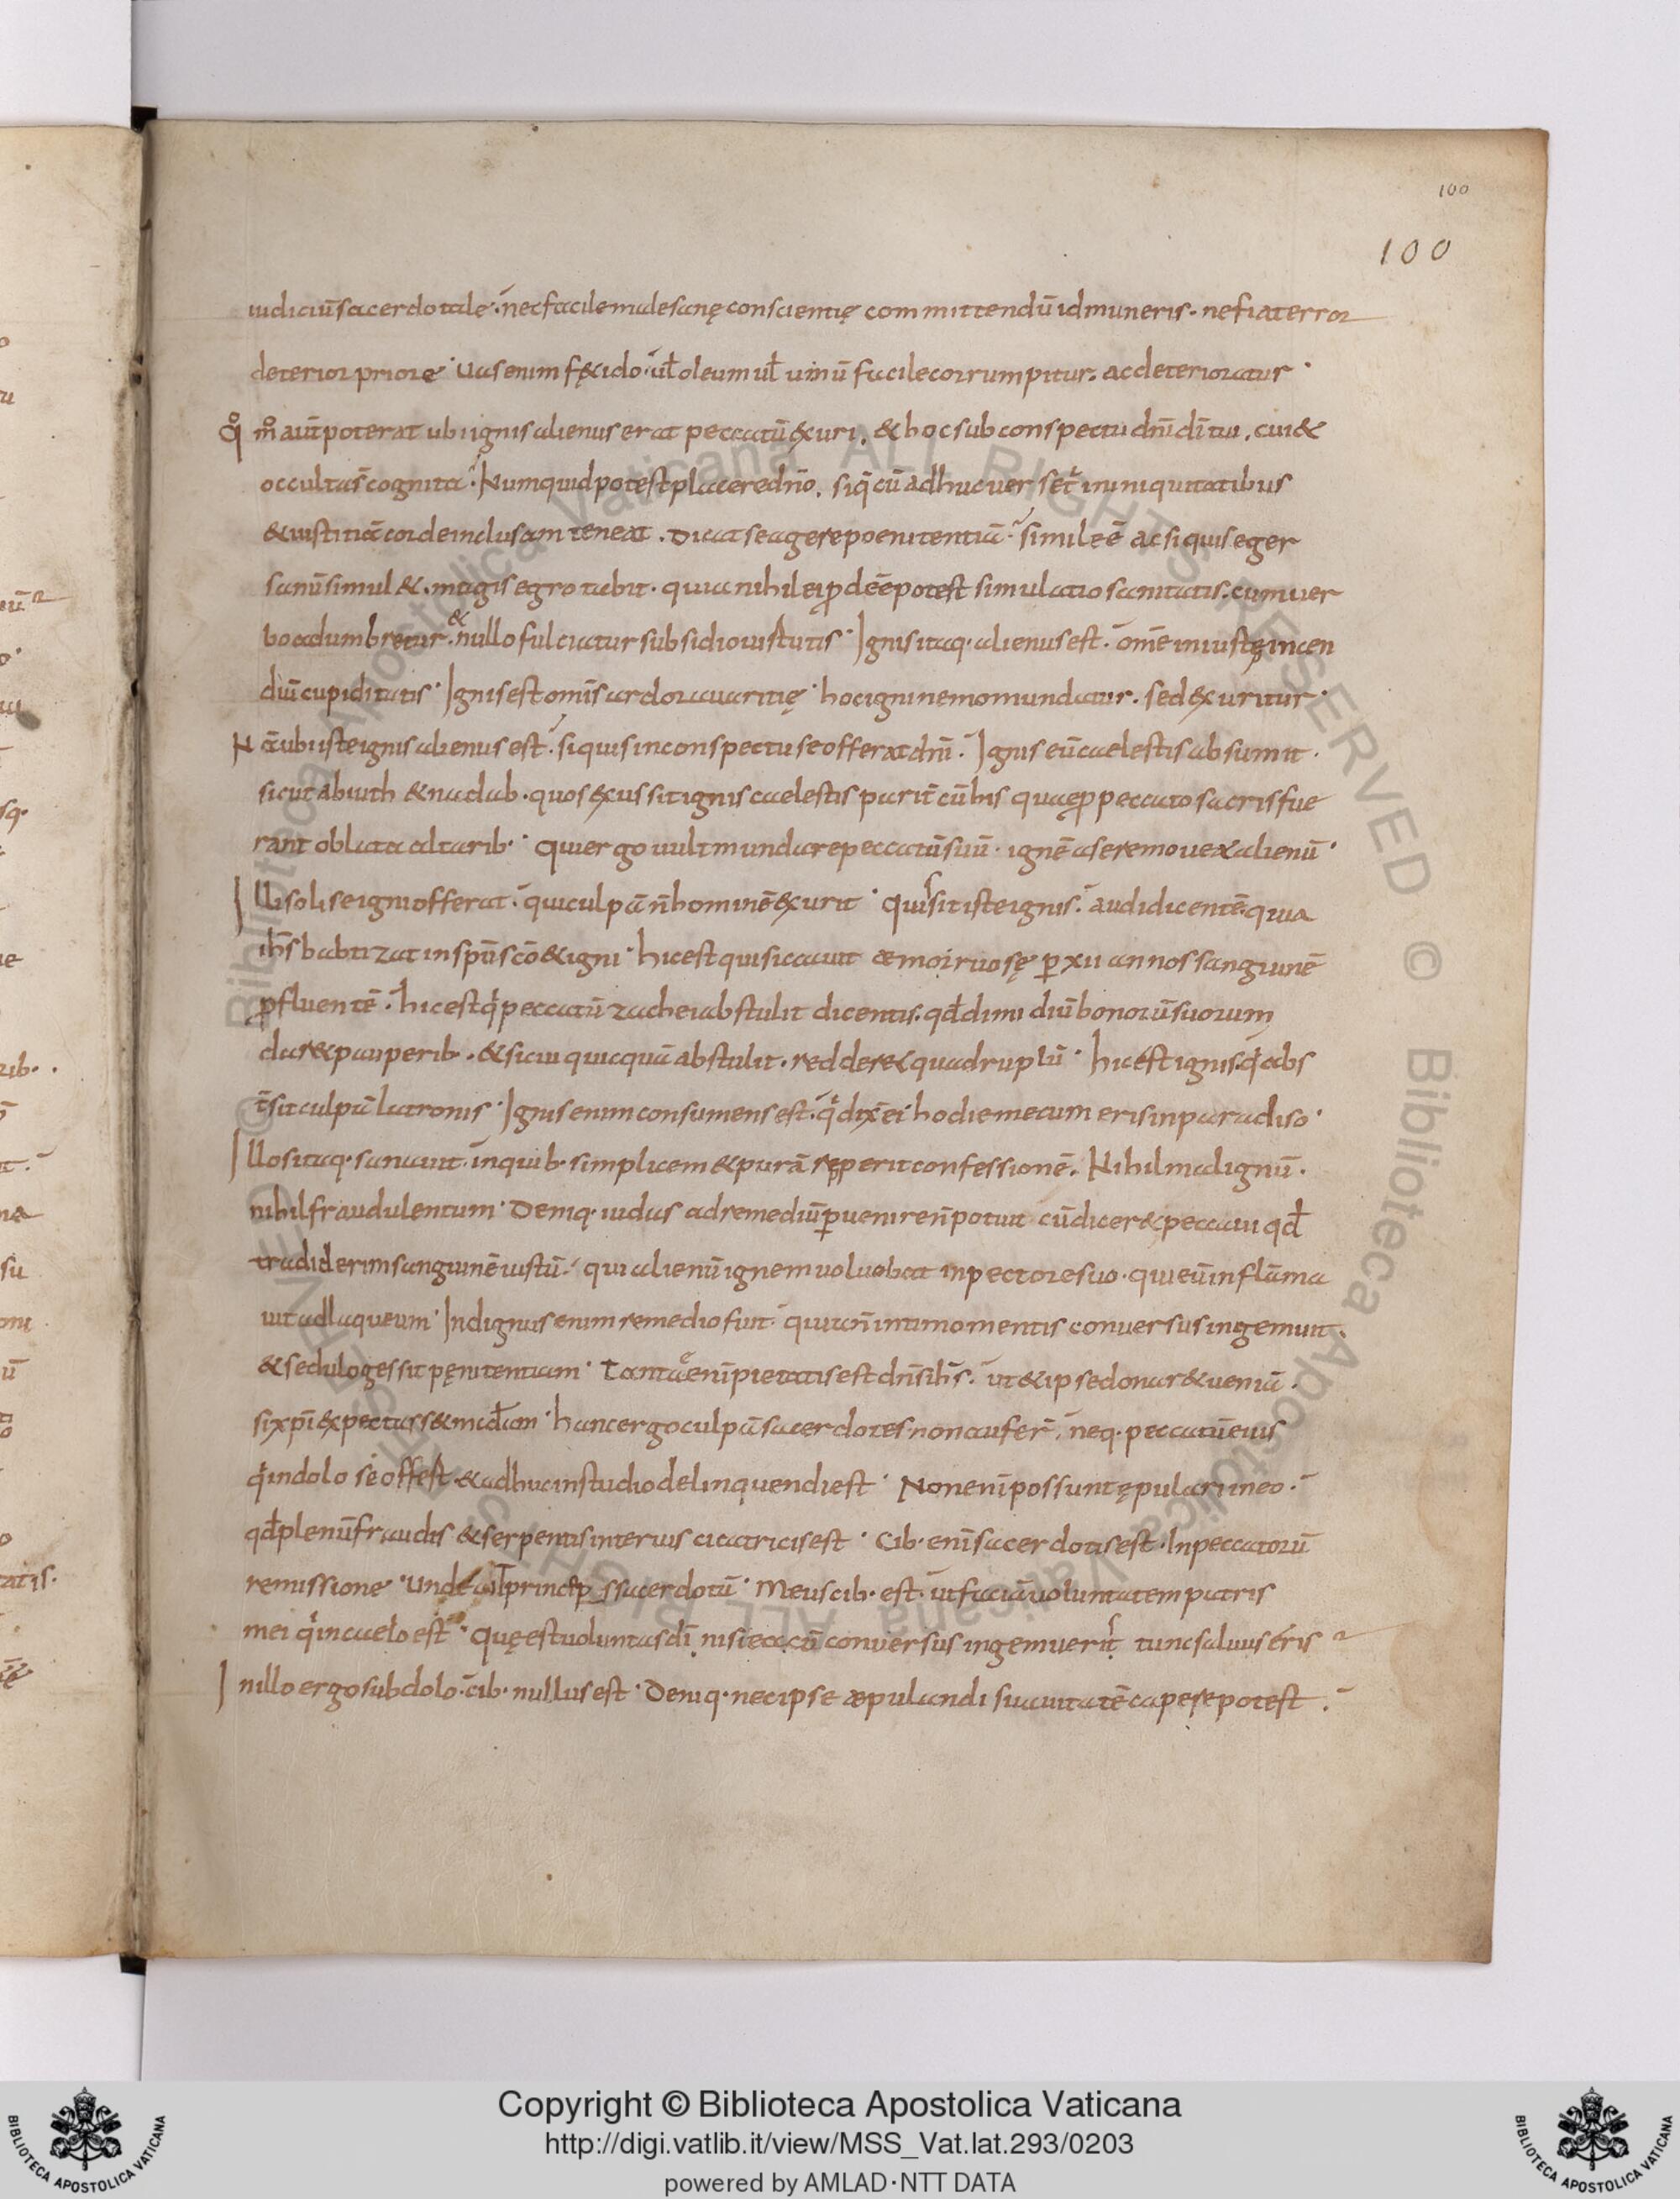 100
100
iudiciū sacerdotale. nec facile malesanę conscientię committendū id muneris. ne fiat error
deterior priore. Uas enim fęcido. ul̄ oleum ul̄ uinū facile corrumpitur. ac deterioratur.
Qm̊ aūt poterat ubi ignis alienus erat peccatū exuri. & hoc sub conspectu dn̄i dī tui. cui &
occulta s̄ cognita. Numquid potest placere dn̄o. siq cū adhuc uerset̄ in iniquitatibus
& iustitiā corde inclusam teneat. Dicat se agere poenitentiā. simile ē ac si quis eger
sanū simul &. magis egrotabit. quia nihil ei ꝓdeē potest simulatio sanitatis. cum uer
bo adumbretur. & nullo fulciatur subsidio uirtutis. Ignis itaq. alienus est. om̄e iniustę incen
diū cupiditatis. Ignis est om̄is ardor auaritię. hoc igni nemo mundatur. sed exuritur.
Nā ubi iste ignis alienus est. si quis in conspectu se offerat dn̄i. Ignis eū caelestis absumit.
sicut abiuth & nadab. quos exussit ignis caelestis parit̄ cū his quae ꝓ peccato sacris fue
rant oblata altarib. Qui ergo uult mundare peccatū suū. ignē a se remoueat alienū.
Illi soli se igni offerat. qui culpā n̄ hominē exurit. Quis sit iste ignis. audi dicentē. quia
ih̄s babtizat in sp̄u s̄cō & igni. hic est qui siccauit aemoirruosę ꝑ xii annos sanguinē
ꝓfluentē. hic est q peccatū zachei abstulit dicentis. qd̄ dimidiū bonorū suorum
daret pauperib. & si cui quicquā abstulit. redderet quadruplū. hic est ignis. q abs
t̄sit culpā latronis. Ignis enim consumens est. q dix̄ ei hodie mecum eris in paradiso.
Illos itaq. sanauit. in quib. simplicem & purā repperit confessionē. Nihil malignū.
nihil fraudulentum. Deniq. iudas ad remediū ꝑuenire n̄ potuit cū diceret peccaui qd̄
tradiderim sanguinē iustū. qui alienū ignem uoluebat in pectore suo. qui eū inflāma
uit ad laqueum. Indignus enim remedio fuit. quia n̄ intimo mentis conuersus ingemuit.
& sedulo gessit pęnitentiam. Tantae enī pietatis est dn̄s ih̄s. ut & ipse donaret ueniā.
si xp̄i expectasset mad̄iam. hanc ergo culpā sacerdotes non aufer̄. neq. peccatū eius
q in dolo se offert & adhuc in studio delinquendi est. Non enī possunt ępulari in eo.
qd̄ plenū fraudis & serpentis interius cicatricis est. Cib. enī sacerdotis est. In peccatorū
remissione. Unde ait princeps sacerdotū. Meus cib. est. ut faciā uoluntatem patris
mei q in caelo est. Quę est uoluntas dī nisi ea cū conuersus ingemuerit tunc saluus eris
In illo ergo subdolo. cib. nullus est. Deniq. nec ipse aepulandi suauitatē capere potest.
Copyright © Biblioteca Apostolica Vaticana
http://digi.vatlib.it/view/MSS_Vat.lat.293/0203
powered by AMLAD·NTT DATA